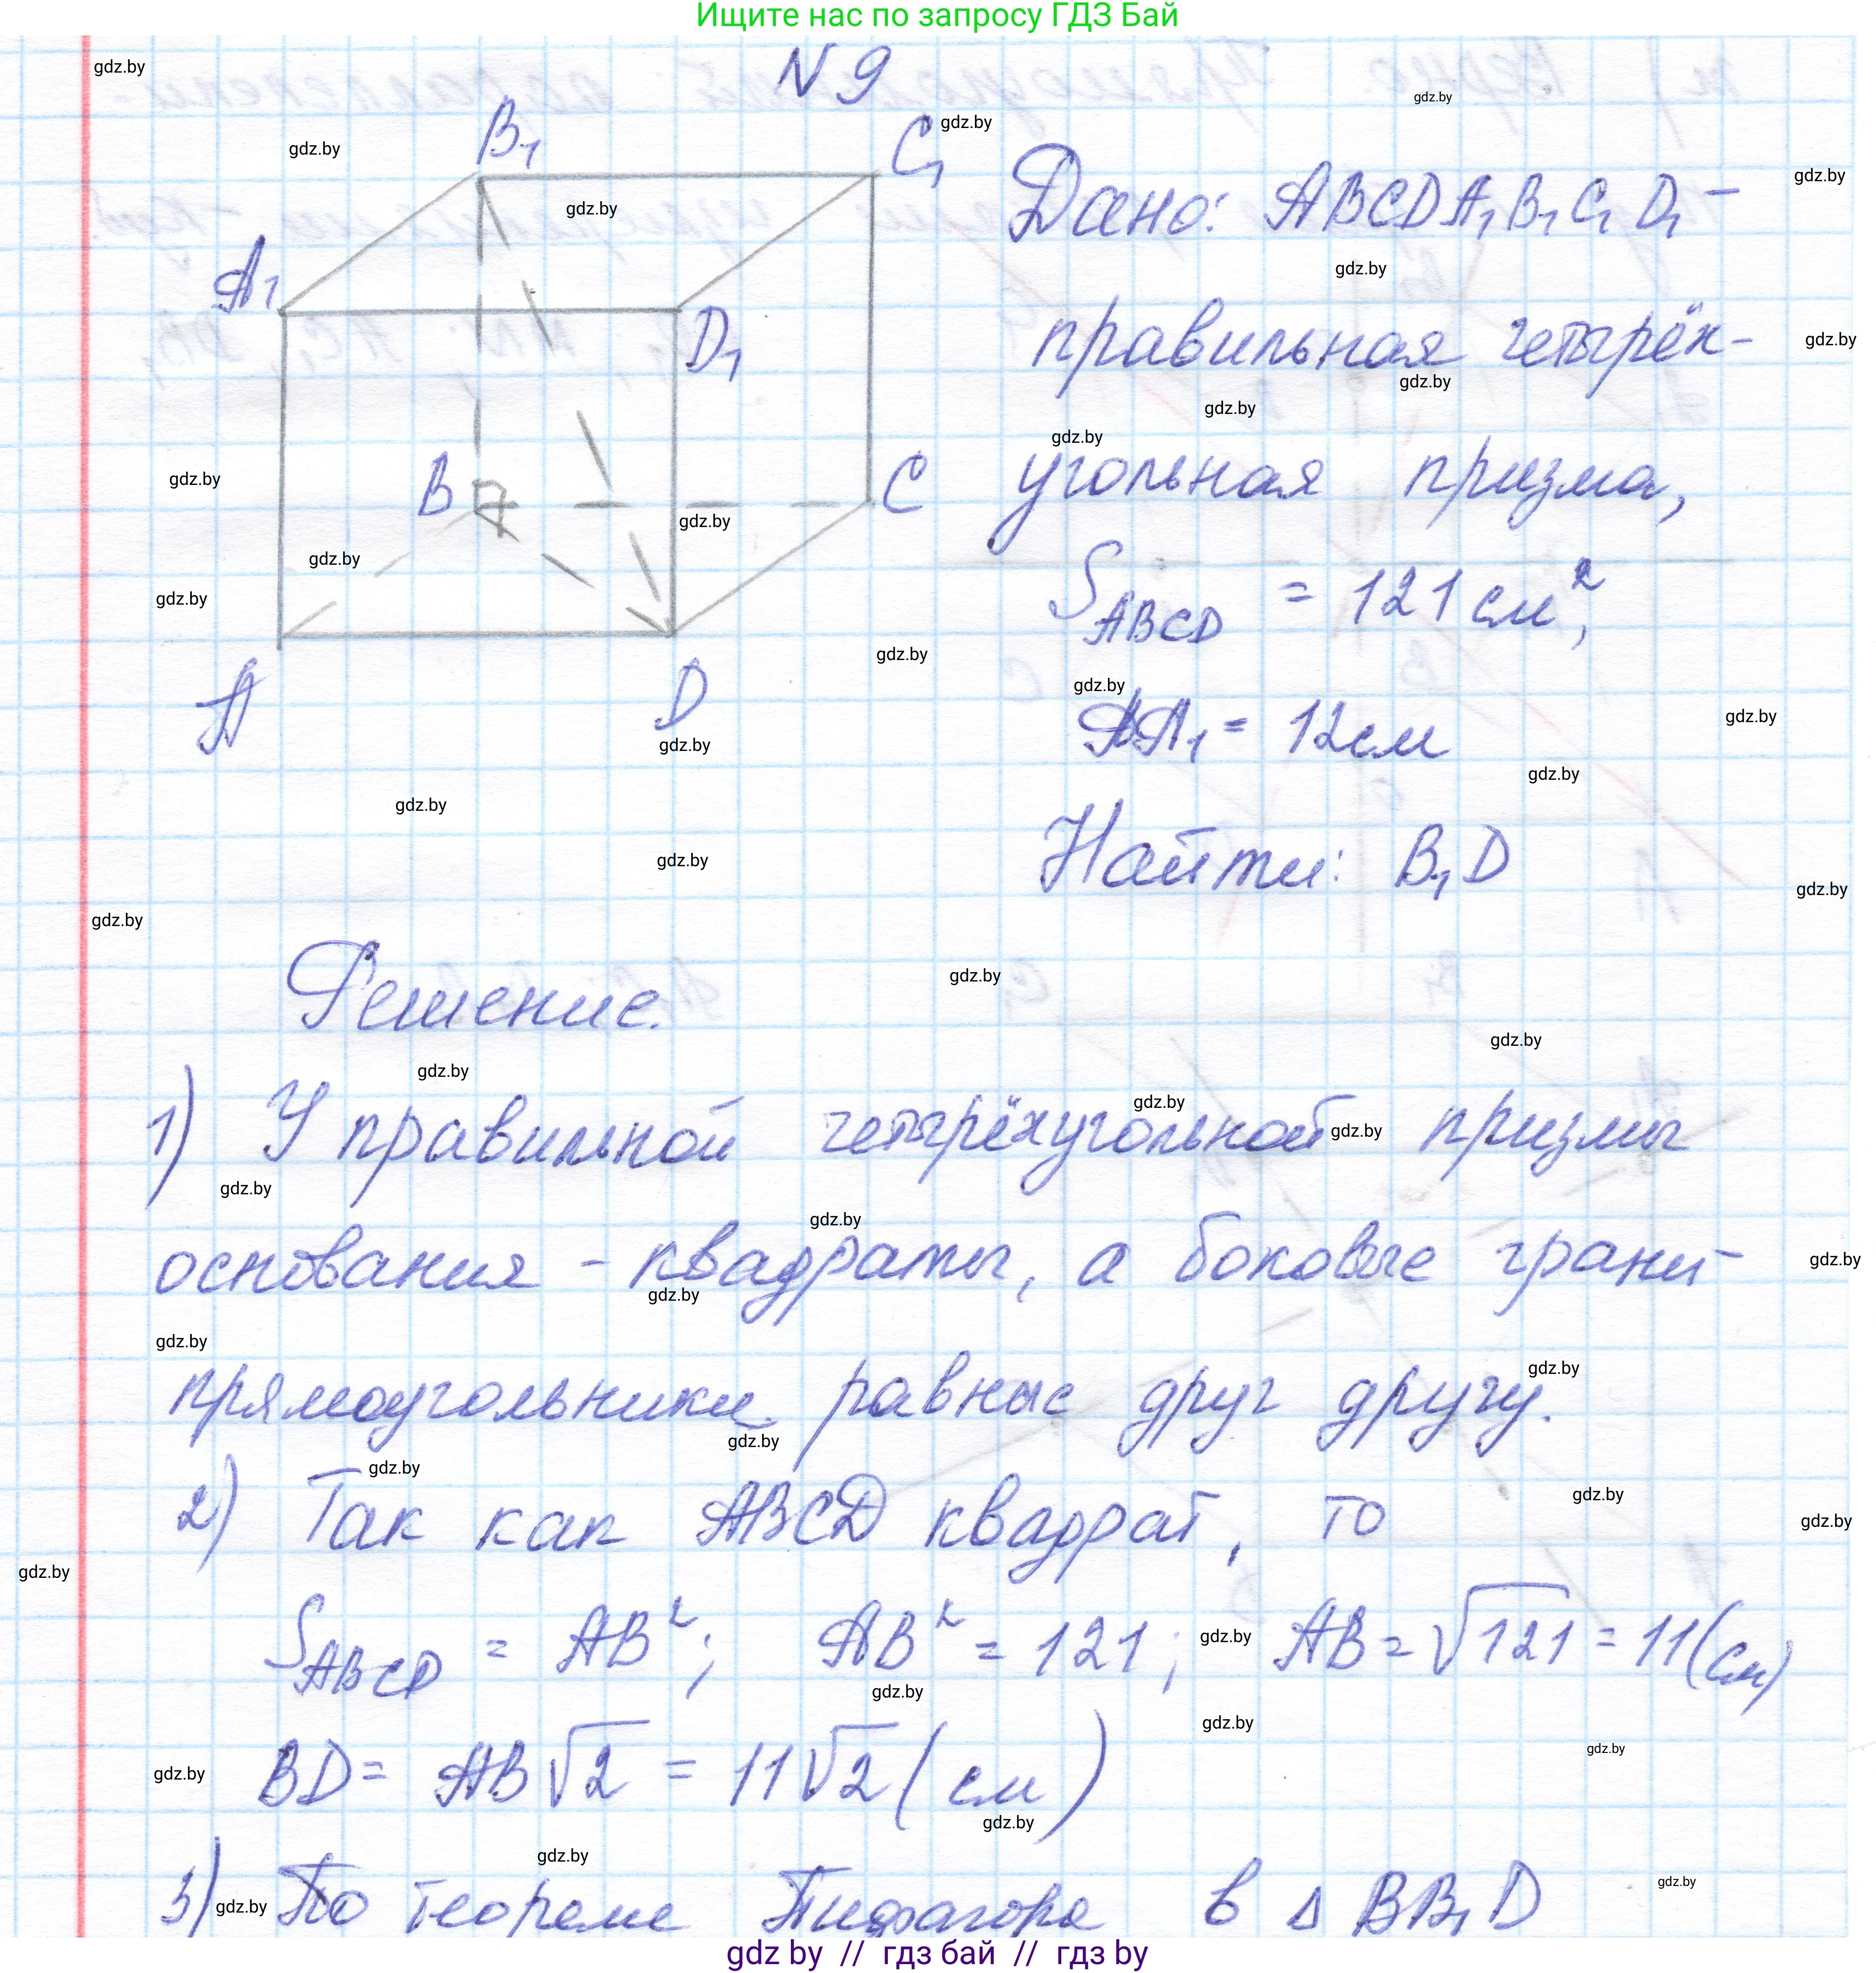 Ищите нас по запросу ГДЗ Бай
N 9
B₁
C₁
A₁
D₁
B
C
A
D
Дано: ABCDA₁B₁C₁D₁ –
правильная четырёх-
угольная призма,
S_ABCD = 121 см²,
AA₁ = 12 см
Найти: B₁D
Решение.
1) У правильной четырёхугольной призмы
основания - квадраты, а боковые грани -
прямоугольники равные друг другу.
2) Так как ABCD квадрат, то
S_ABCD = AB²; AB² = 121; AB = √121 = 11 (см)
BD = AB√2 = 11√2 (см)
3) По теореме Пифагора в Δ BB₁D
gdz.by
gdz by // гдз бай // гдз by